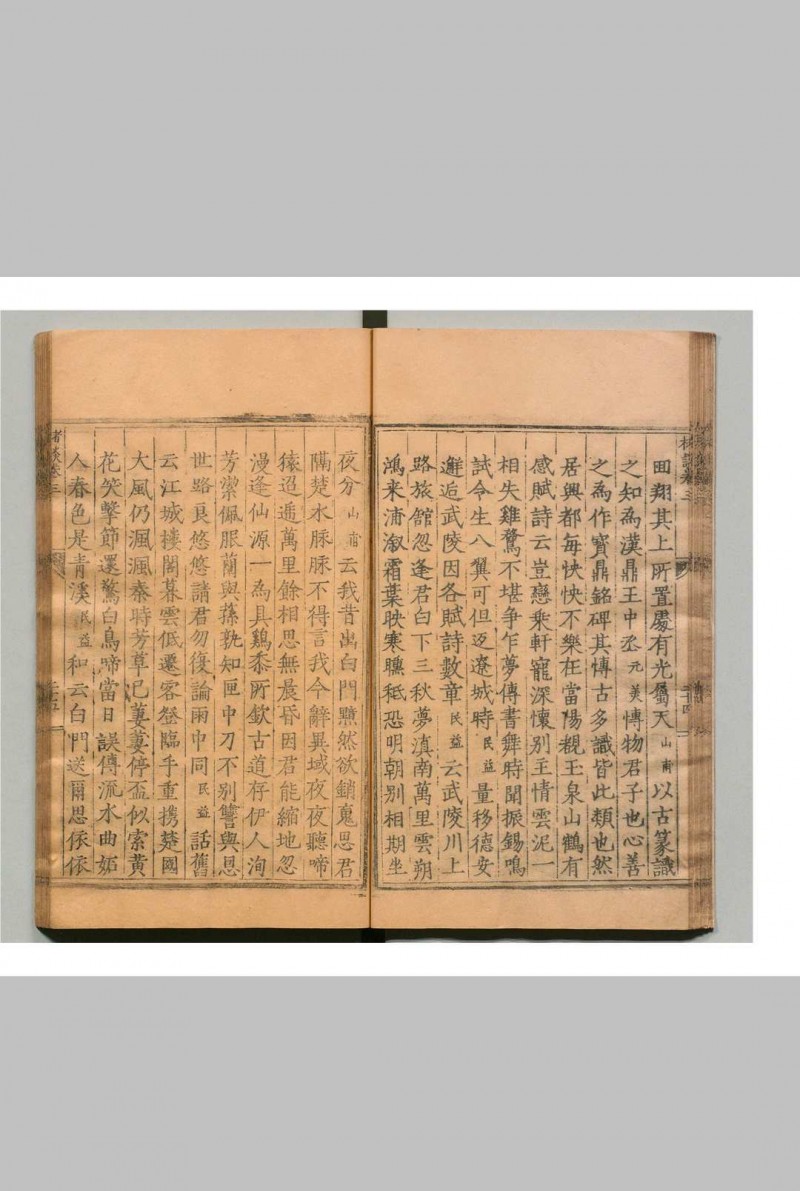 田翔其上所置處有光屬天山甫以古篆識
之知為漢鼎王中丞元美博物君子也心善
之為作寶鼎銘碑其博古多識皆此類也然
居興都每怏怏不樂在當陽親玉泉山鶴有
感賦詩云豈戀乘軒寵深懷別主情雲泥一
相失雞鶩不堪爭乍夢傳書舞時聞振錫鳴
試令生八翼可但返遼城時民益量移德安
邂逅武陵因各賦詩數章民益云武陵川上
路旅館忽逢君白下三秋夢滇南萬里雲朔
鴻来浦溆霜葉映寒曛秪恐明朝別相期坐
夜分山甫云我昔出白門黯然欲銷䰟思君
隔楚水脉脉不得言我今辭異域夜夜聽啼
猿迢遞萬里餘相思無晨昏因君能縮地忽
漫逢仙源一為具鷄黍所欽古道存伊人洵
芳潔佩服蘭與蓀孰知匣中刀不別讐與恩
世路良悠悠諸君勿復論雨中同民益話舊
云江城樓閣暮雲低遷客登臨手重携楚國
大風仍渢渢秦時芳草已萋萋停盃似索黄
花笑擊節還驚白鳥啼當日誤傳流水曲妬
人春色是青溪民益和云白門送爾思依依
渚談卷三